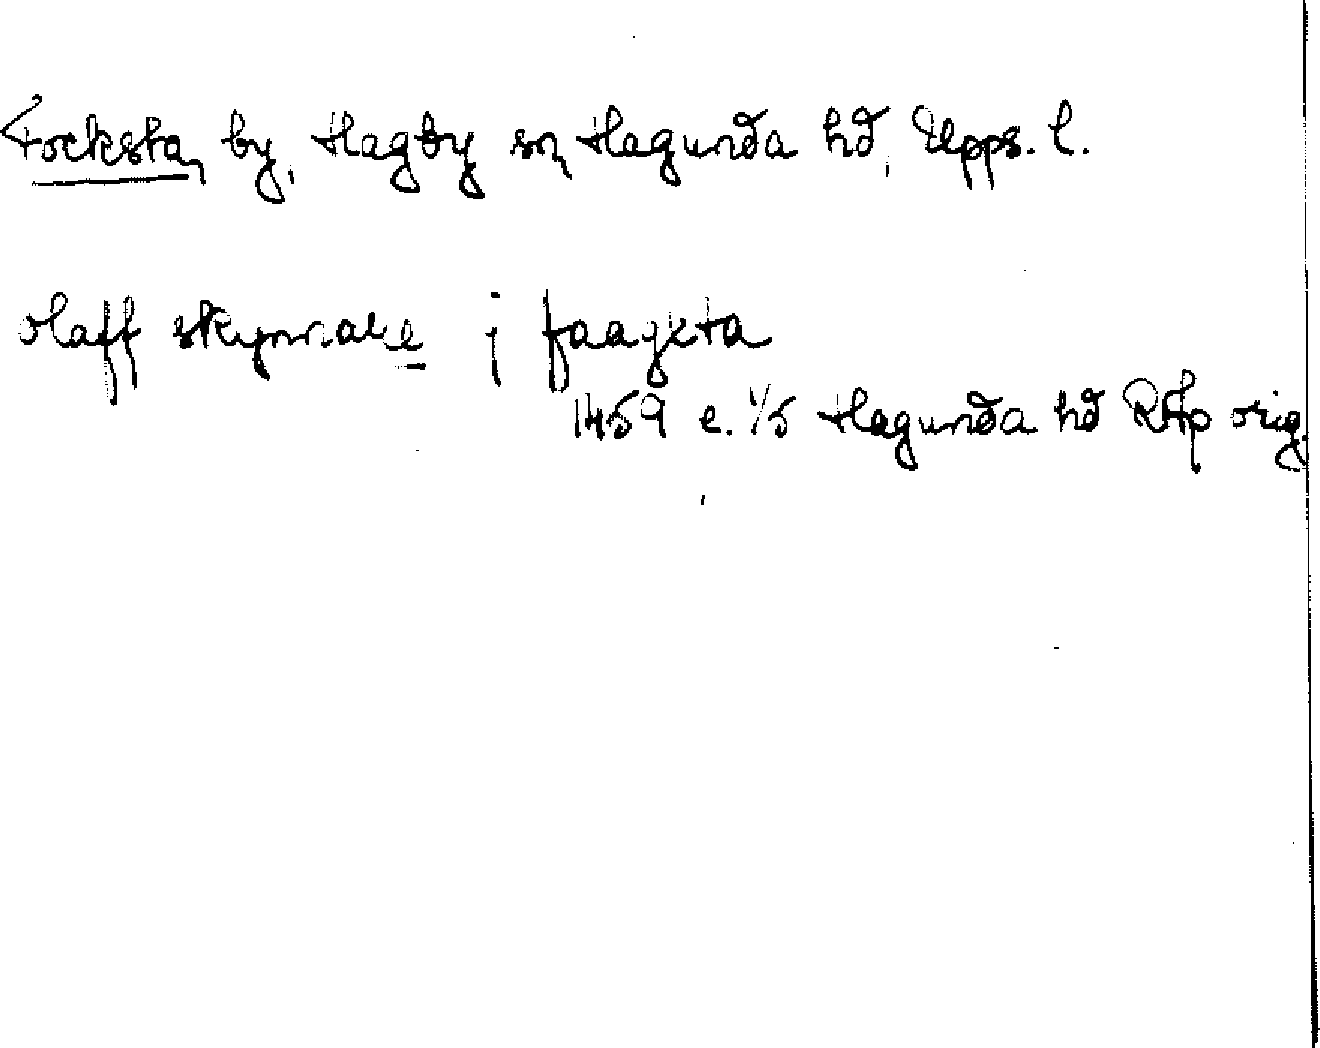 Focksta, by, Hagby sn, Hagunda hd, Upps. l.
olaff skynnare j faagxta
1459 e. 1/5 Hagunda hd RAp orig.